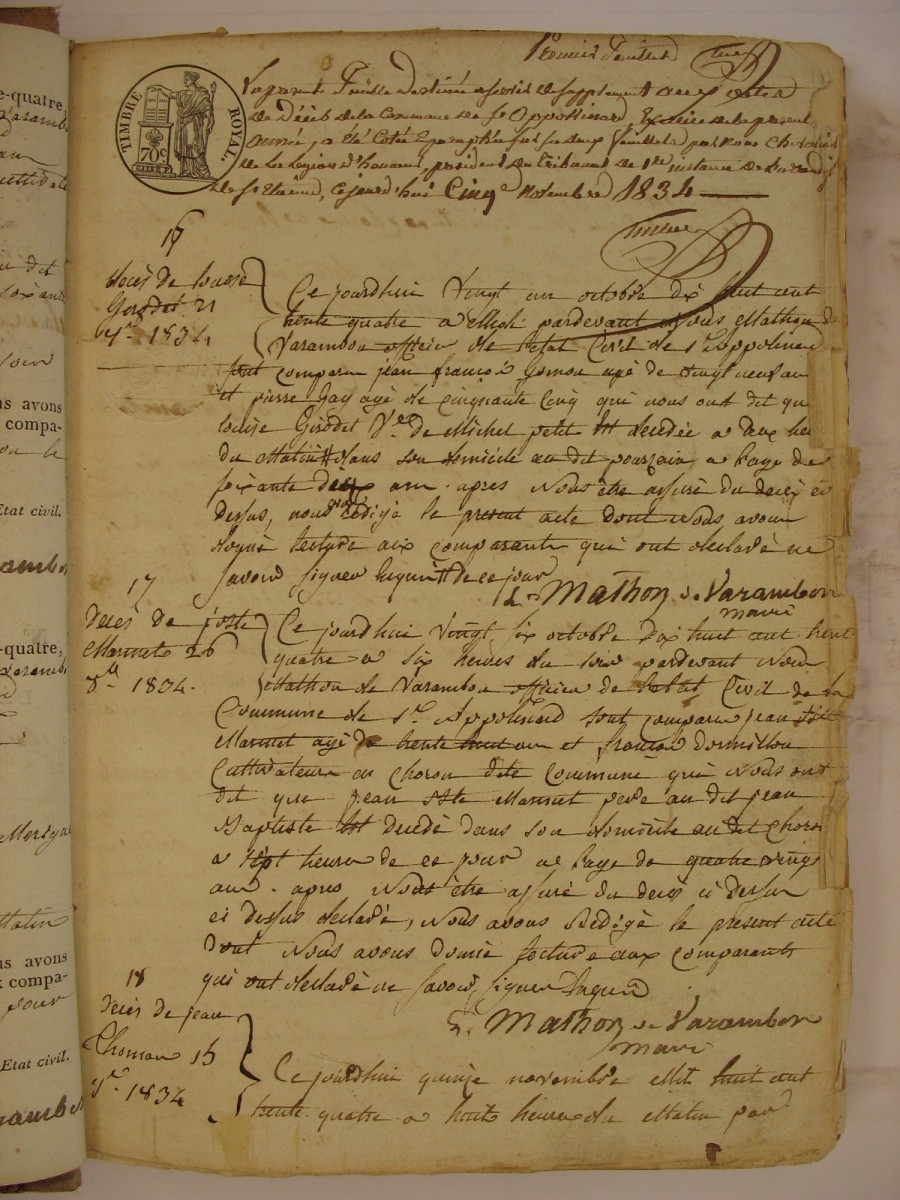 Premier feuillet
TIMBRE ROYAL.
70c
La présente feuille destinée à servir de supplément aux actes
de Décès de la Commune de St Appollinard, Exercice de la présente
année, a été cotée & paraphée sur ses deux feuillets, par nous Chevalier
de la Légion d'honneur, président du tribunal de 1re instance de
de St Etienne, ce jourd'hui Cinq Novembre 1834
16
décès de
Girodet 21
1834
Ce jourdhui Vingt un octobre dix huit cent
trente quatre a Midi pardevant Nous Mathon de
Varambon officier de l'etat Civil de St Appolinard
sont comparu jean françois age de vingt neuf an
et pierre Gay agé de cinquante cinq qui nous ont dit que
louise Girodet Ve de Michel petit Est decedée a deux heu
du Matin dans son domicile au dit a l'age de
soixante deux ans. apres Nous être assuré du décès ci
dessus, nous avons rédigé le present acte dont Nous avons
donné lecture aux comparants qui ont declaré ne
savoir signer de ce jour
Mathon de Varambon
maire
17
Décès de j. bste
Marmet 26
8bre 1834.
Ce jourdhui Vingt six octobre Dix huit cent trent
quatre a six heures du soir pardevant Nous
Mathon de Varambon officier de l'etat Civil de la
Commune de St Appolinard sont comparu jean bste
Marmet agé de trente huit an et françois
Cultivateur au Choron dite Commune qui Nous ont
dit que jean bste Marmet pere au dit jean
Baptiste Est decedé dans son domicile au dit Choron
a sept heures de ce jour a l'age de quatre vingt
ans. apres Nous être assuré du decès ci dessus
ci dessus declaré, Nous avons Redigé le present acte
Dont Nous avons donné lecture aux comparants
qui ont declaré ne savoir signer
Mathon de Varambon
maire
18
Décès de jean
Thomas 15
1834
Ce jourdhui quinze novembre mil huit cent
trente quatre a huit heures du Matin par